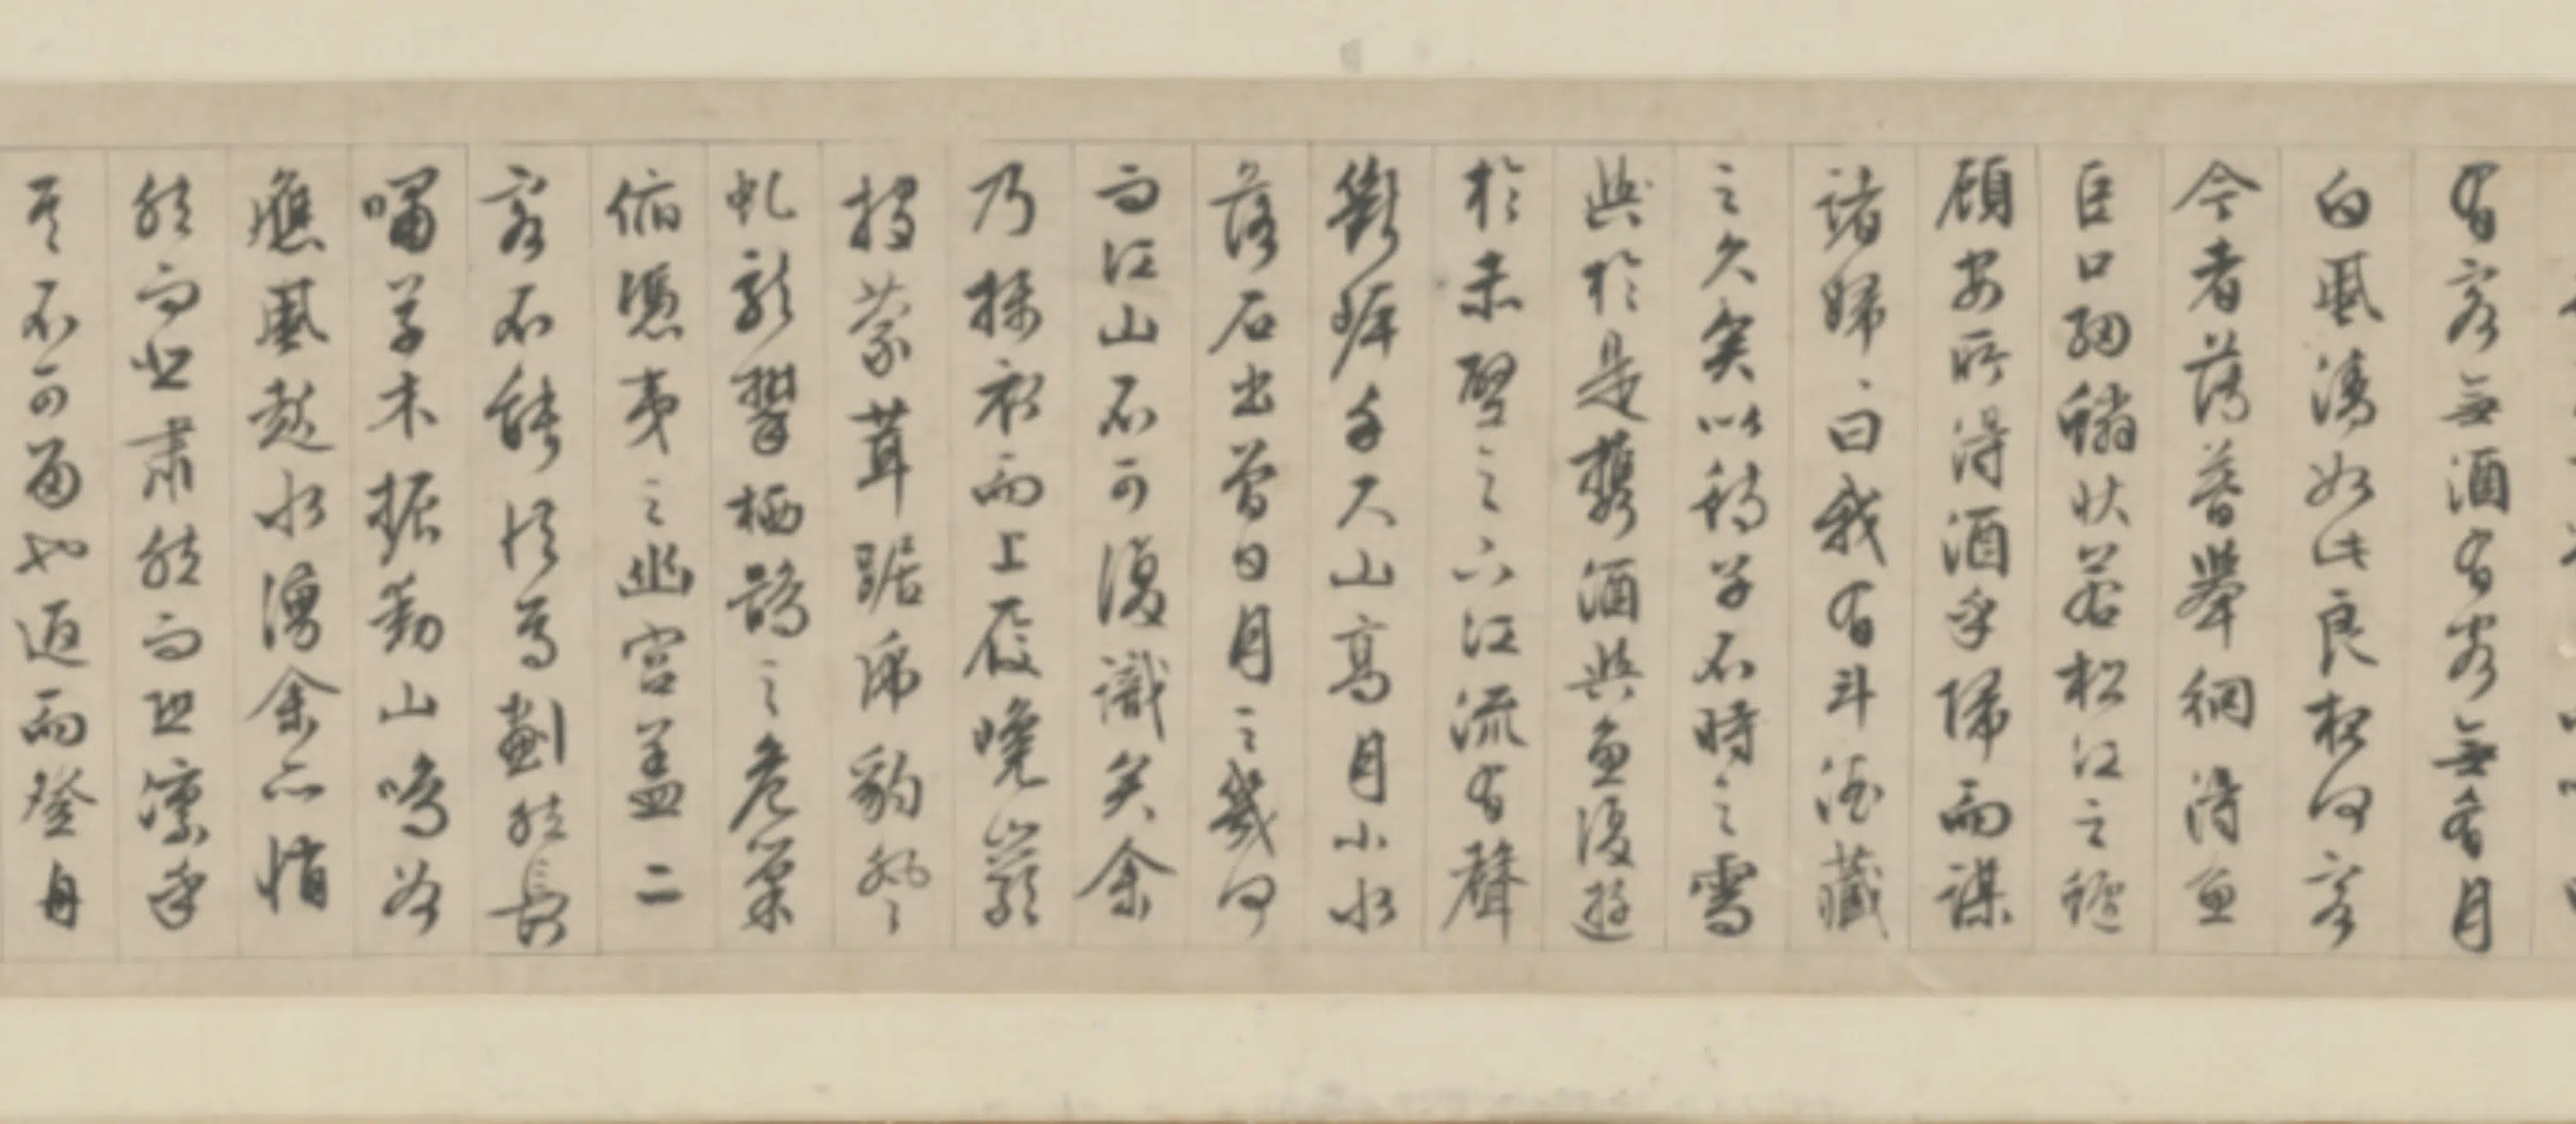 有客無酒有客無肴月
白風清如此良夜何客
今者薄暮舉網得魚
巨口細鱗狀若松江之鱸
顧安所得酒乎歸而謀
諸婦、曰我有斗酒藏
之久矣以待子不時之需
與於是攜酒與魚復遊
於赤壁之下江流有聲
斷岸千尺山高月小水
落石出曾日月之幾何
而江山不可復識矣余
乃攝衣而上履巉巖
披蒙茸踞虎豹登
虬龍攀栖鶻之危巢
俯憑夷之幽宮蓋二
客不能從焉劃然長
嘯草木振動山鳴谷
應風起水湧余亦悄
然而悲肅然而恐凜乎
其不可留也返而登舟